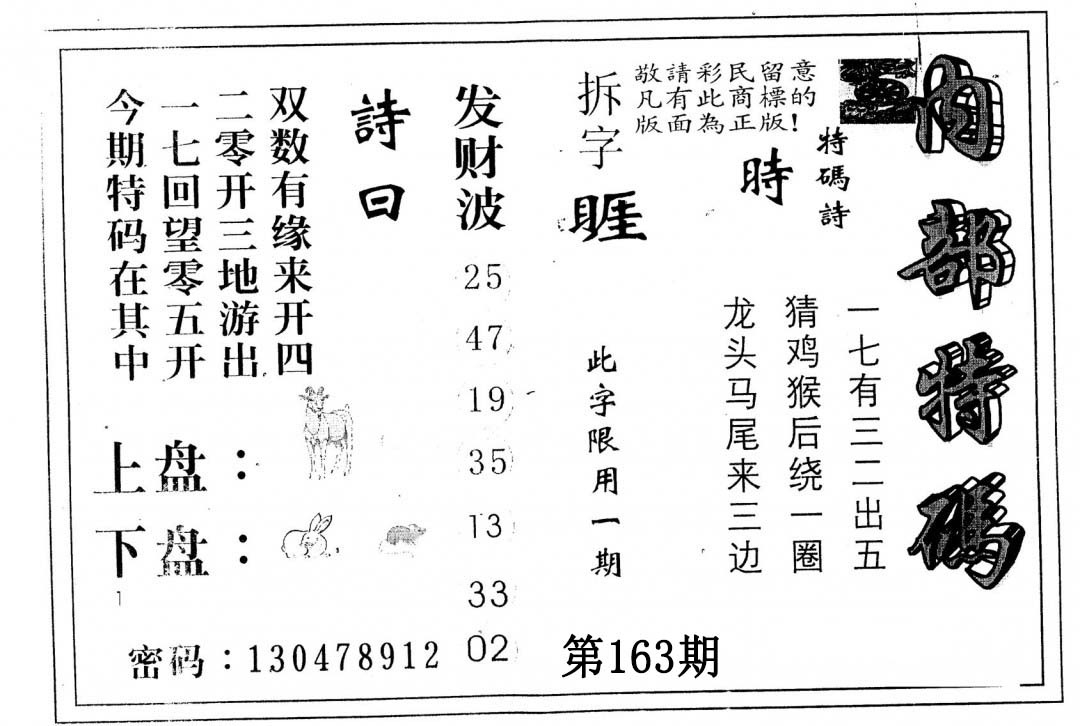 内部特碼
敬請彩民留意
凡有此商標的
版面為正版!
特碼詩
時
一七有三二出五
猜鸡猴后绕一圈
龙头马尾来三边
拆字
睚
此字限用一期
发财波
25
47
19
35
13
33
02
詩曰
双数有缘来开四
二零开三地游出
一七回望零五开
今期特码在其中
上盘：
下盘：
密码：130478912
第163期